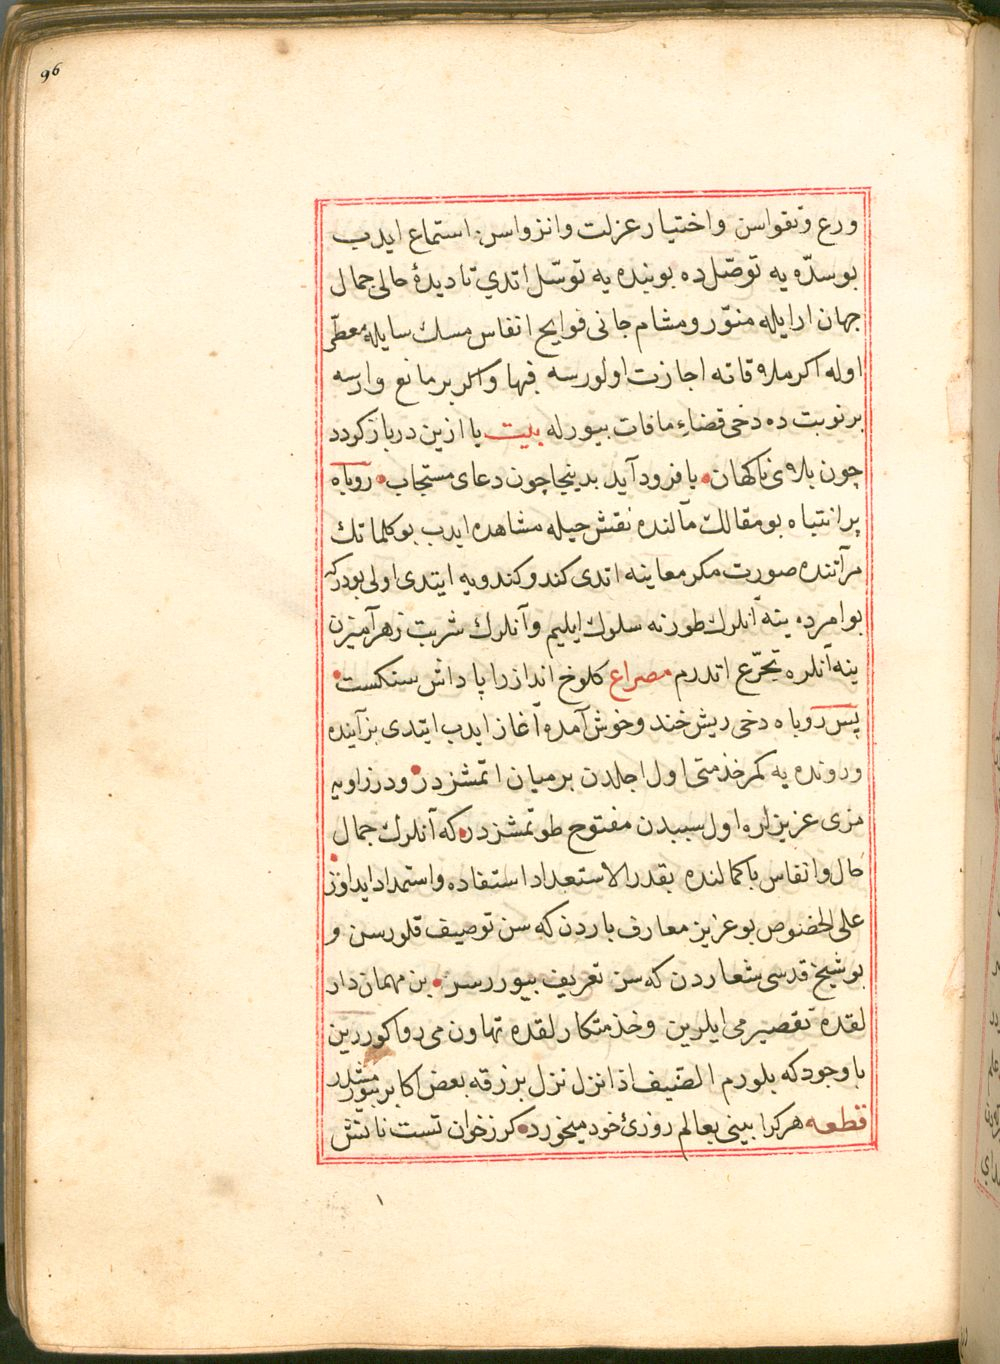 96
ورع وتقواسن واختیار عزلت وانزواسن استماع ایدب
بوسدّه یه توصّل ده بوبنده یه توسّل اتدي تا دیدهٔ حالی جمال
جهان ارایله منوّر و مشام جانی فوایح انفاس مسك سایله معطّر
اوله اکر ملاقاته اجازت اولورسه فبها واکر بر مانع وارسه
بر نوبت ده دخی قضاءِ مافات بیورله بیت یا ازین در باز کردد
چون بلای ناکهان یا فرود آید بدینجا چون دعای مستجاب روباه
پر انتباه بو مقالك مآلنده نقش حیله مشاهده ایدب بو کلماتك
مرآتنده صورت مکر معاینه اتدی کندو کندویه ایتدی اولی بودرکه
بو امرده ینه آنلرك طورنه سلوك ایلیم وآنلرك شربت زهرآمیزن
ینه آنلره تجرّع اتدرم مصراع کلوخ انداز را پاداش سنکست
پس روباه دخی ریش خند وخوش آمده آغاز ایدب ایتدی بز آینده
ورونده یه کمر خذمتی اول اجلدن بر میان اتمشزدر ودر زاویه
مزی عزیزلره اول سببدن مفتوح طوتمشزدر که آنلرك جمال
حال وانفاس باکمالنده بقدر الاستعداد استفاده واستمداد ایداوز
علی الخصوص بو عزیز معارف باردن که سن توصیف قلورسن و
بو شیخ قدسی شعاردن که سن تعریف بیوررسن بن مهمان دار
لقده تقصیر می ایلرین وخذمتکارلقده تهاون می روا کوررین
باوجود که بلورم الضّیف اذا نزل نزل برزقه بعض اکابر بیورمشلدر
قطعه هر کرا بینی بعالم روزئ خود میخورد کر ز خوان تست نانش